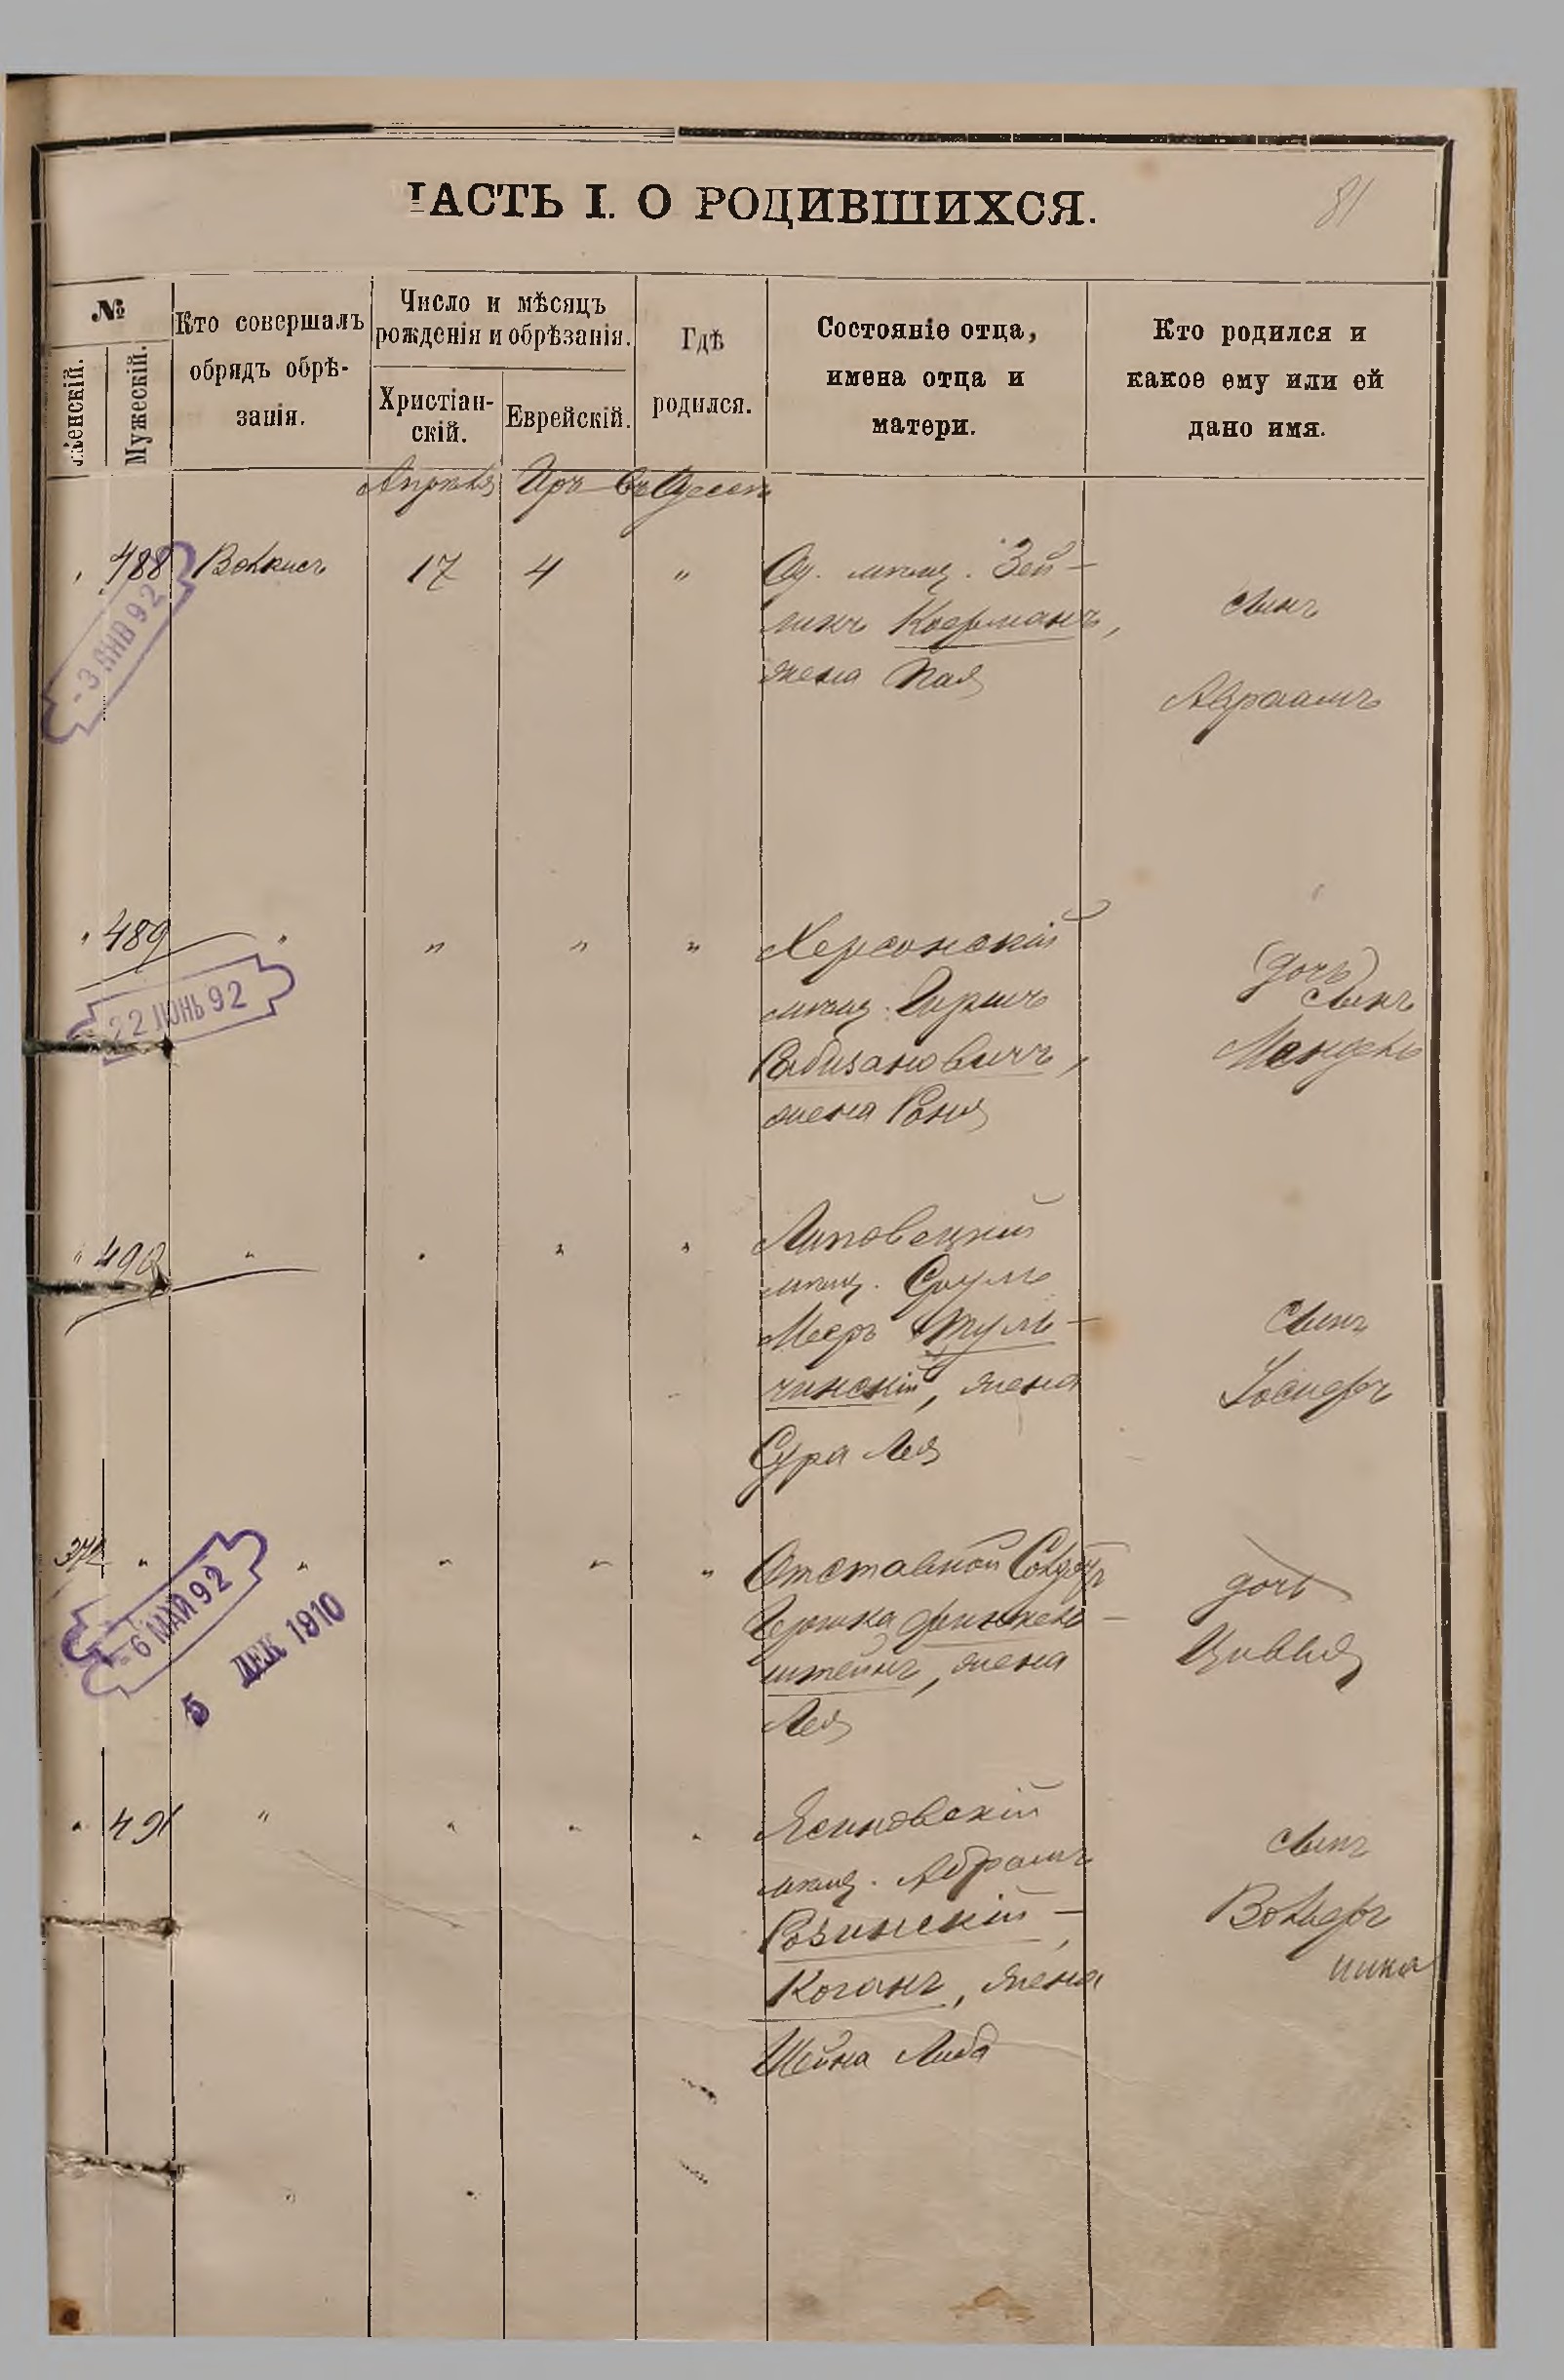 ЧАСТЬ I. О РОДИВШИХСЯ.
81
№
Женскій.
Мужескій.
Кто совершалъ
обрядъ обрѣ-
занія.
Число и мѣсяцъ
рожденія и обрѣзанія.
Христіан-
скій.
Еврейскій.
Гдѣ
родился.
Состояніе отца,
имена отца и
матери.
Кто родился и
какое ему или ей
дано имя.
Апрѣля Іяръ въ Одессѣ
" 488 17 4 "
- 3 ЯНВ 92
Од. мѣщ. Зей-
ликъ Коерманъ,
жена Пая
сынъ
Авраамъ
" 489 " " " "
22 ІЮНЬ 92
Херсонскій
мѣщ. Гиршъ
Рабиановичъ,
жена Роня
(дочь)
сынъ
Мендель
" 490 " " " "
Липовецкій
мѣщ. Сруль
Мееръ Туль-
чинскій, жена
Сура Лея
сынъ
Іосифъ
372 " " " " "
- 6 МАЙ 92
5 ДЕК 1910
Отставной Солдатъ
Гершка Финкель-
штейнъ, жена
Лея
дочь
Цивья
" 491 " " " "
Ясиновскій
мѣщ. Абрамъ
Розинскій -
Коганъ, жена
Шейна Либа
сынъ
Вольфъ